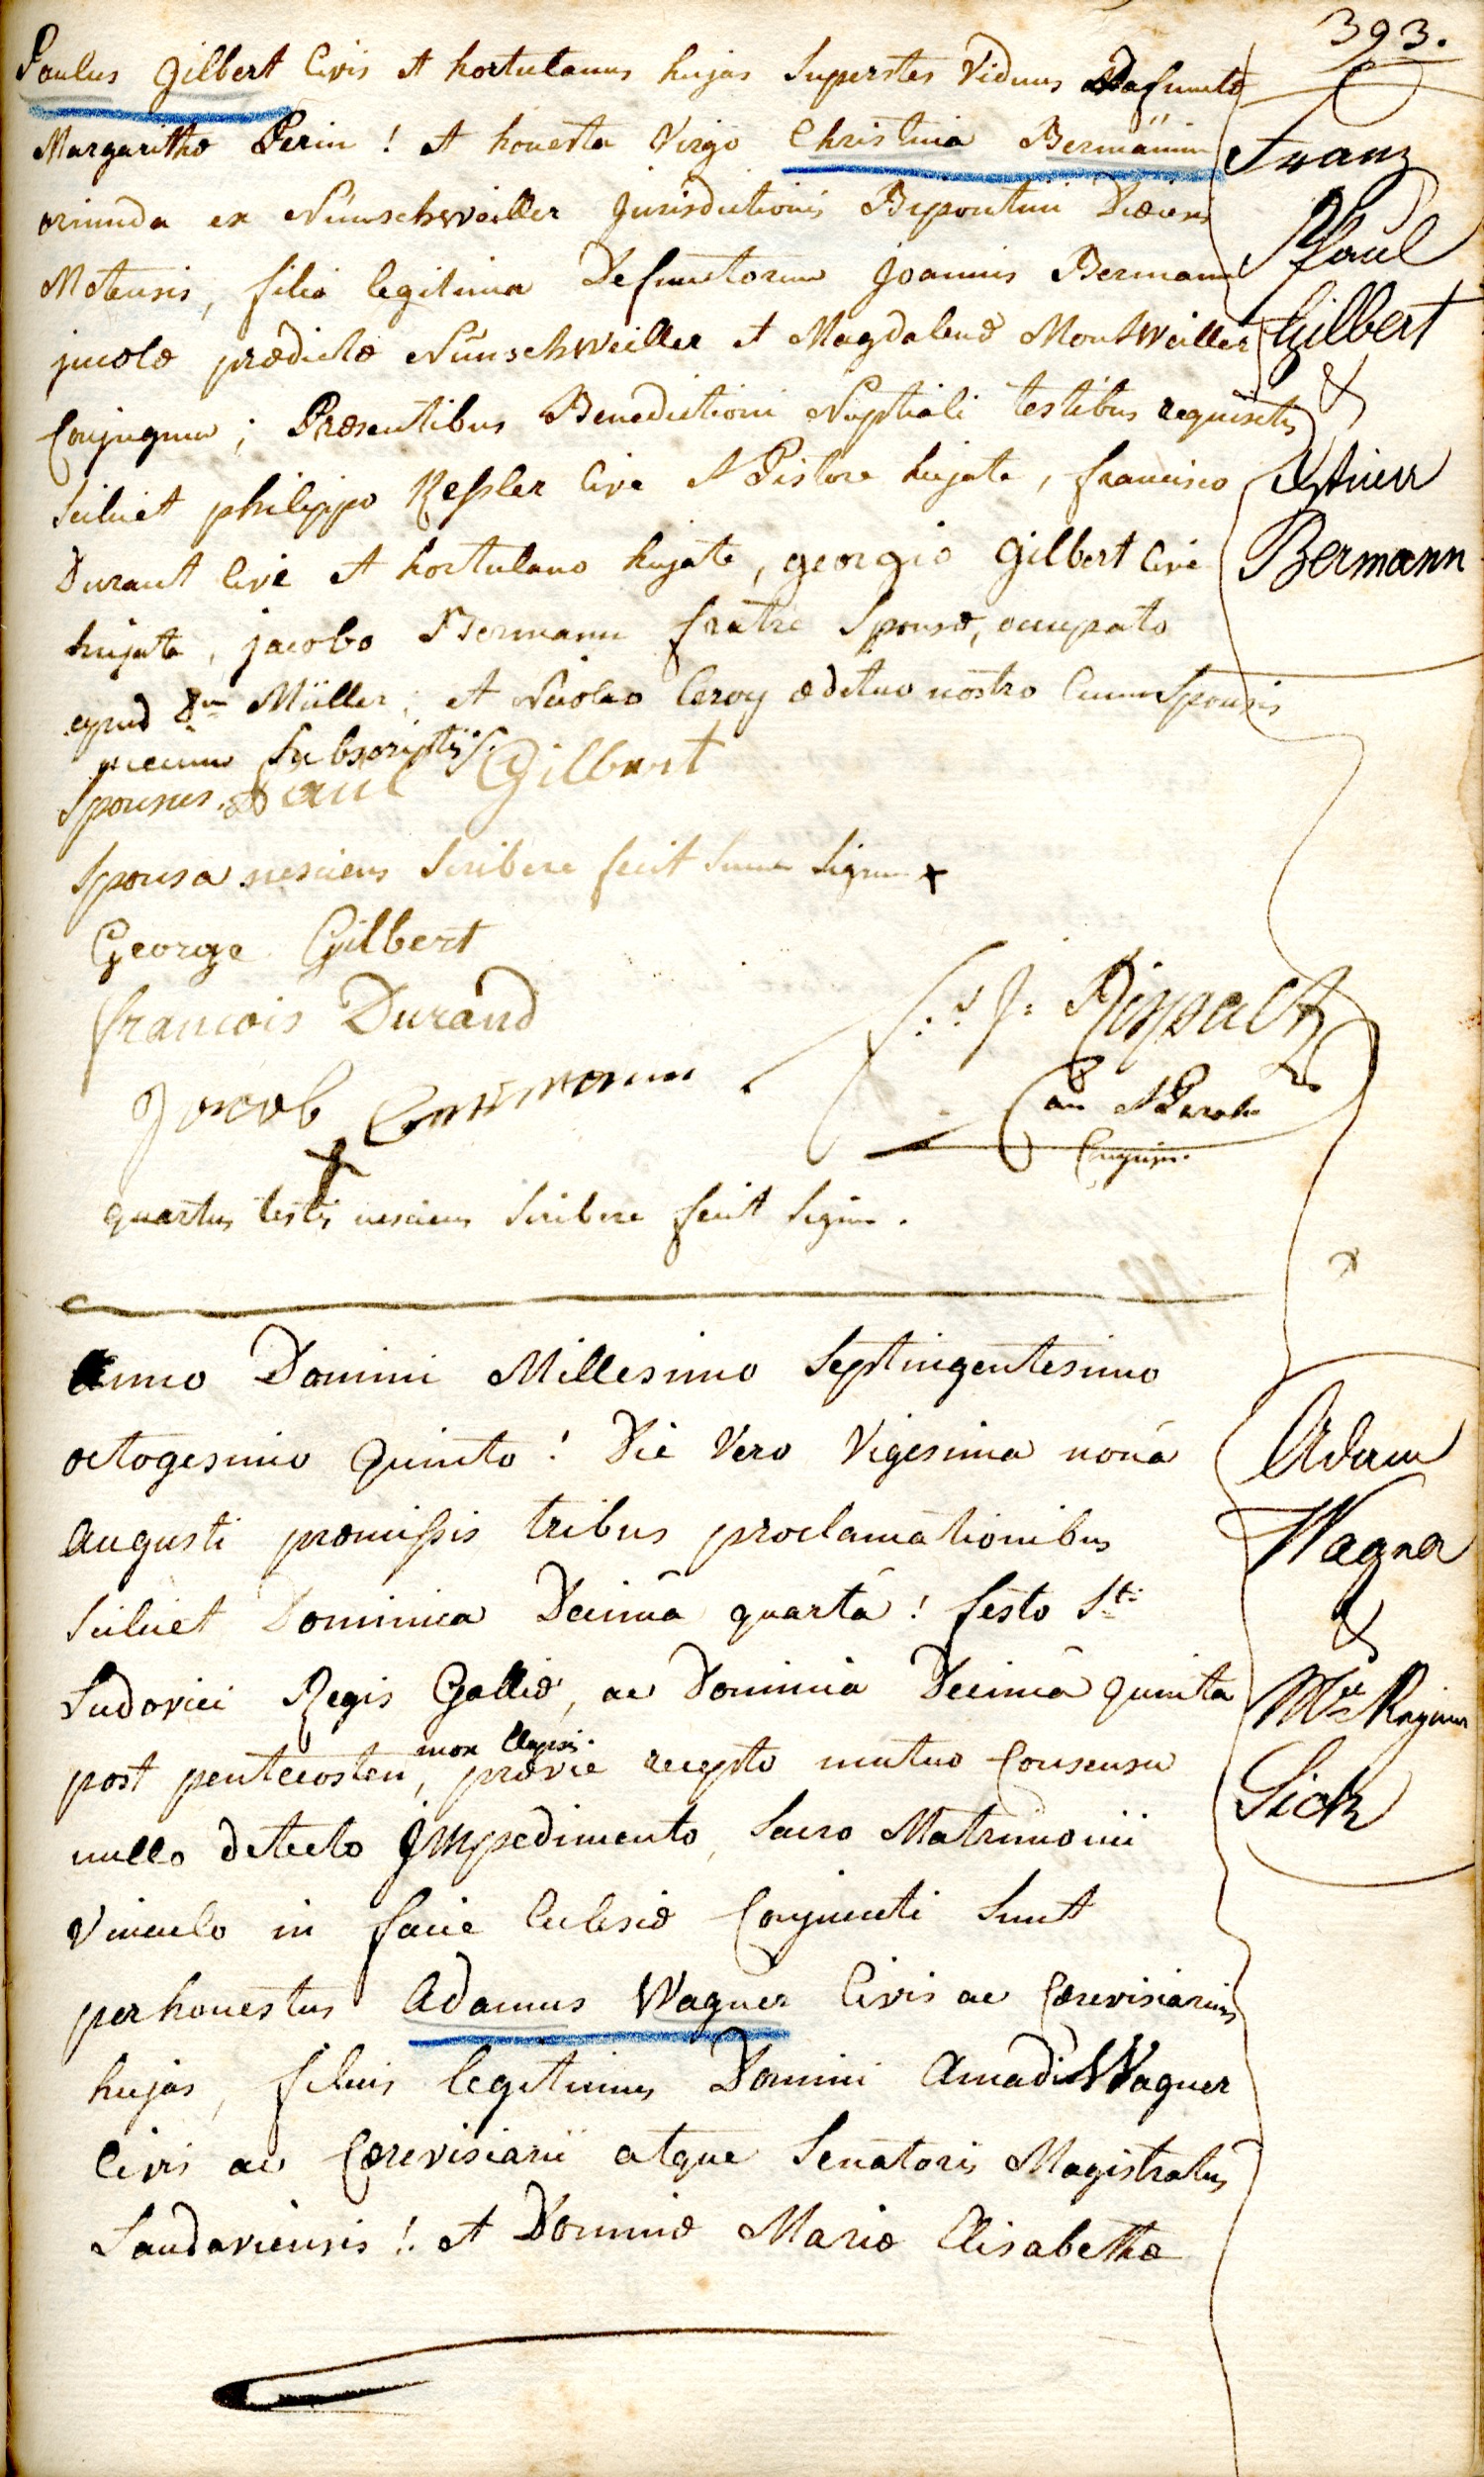 393.
Paulus Gilbert Civis et hortulanus hujas Superstes Viduus Defunctæ
Margarithæ Perin ! et honesta Virgo Christina Bermännin
oriunda ex Nünschweiller Jurisdictionis Bipontini Diœcesis
Metensis, filia legitima Defunctorum Joannis Bermann
incolæ prædictæ Nünschweiller et Magdalenæ Montweiller
Conjugum ; Præsentibus Benedictioni Nuptiali testibus requisitis
scilicet philippo Keßler Cive et Pistore hujate, francisco
Durant Cive et hortulano hujate, georgio Gilbert Cive
hujate, jacobo Bermann fratre Sponsæ, occupato
apud Dum Müller ; et Nicolao Ceroy ædituo nostro Cum Sponsis
mecum Subscriptis.
Sponsus. Paul Gilbert
Sponsa nesciens Scribere fecit Suum Signum +
George Gilbert
francois Durand
Jacob
quartus testis nesciens Scribere fecit Signum.
Franz
Paul
Gilbert
&
Bermann
Anno Domini Millesimo Septingentesimo
octogesimo Quinto ! Die Vero Vigesima nonâ
Augusti præmißis tribus proclamationibus
Scilicet Dominica Decimâ quartâ ! festo Sti
Ludovici Regis Galliæ, ac Dominicâ Decimâ quinta
post pentecosten, mox Elapsis. prævie recepto mutuo Consensu
nullo detecto Impedimento, Sacro Matrimonii
Vinculo in facie Ecclesiæ Conjuncti Sunt
perhonestus Adamus Wagner Civis ac Cærevisiarius
hujas, filius legitimus Domini Amadi Wagner
Civis ac Cærevisiarii atque Senatoris Magistratus
Landaviensis ! et Dominæ Mariæ Elisabethæ
Adam
Wagner
&
Mar Regina
Sick